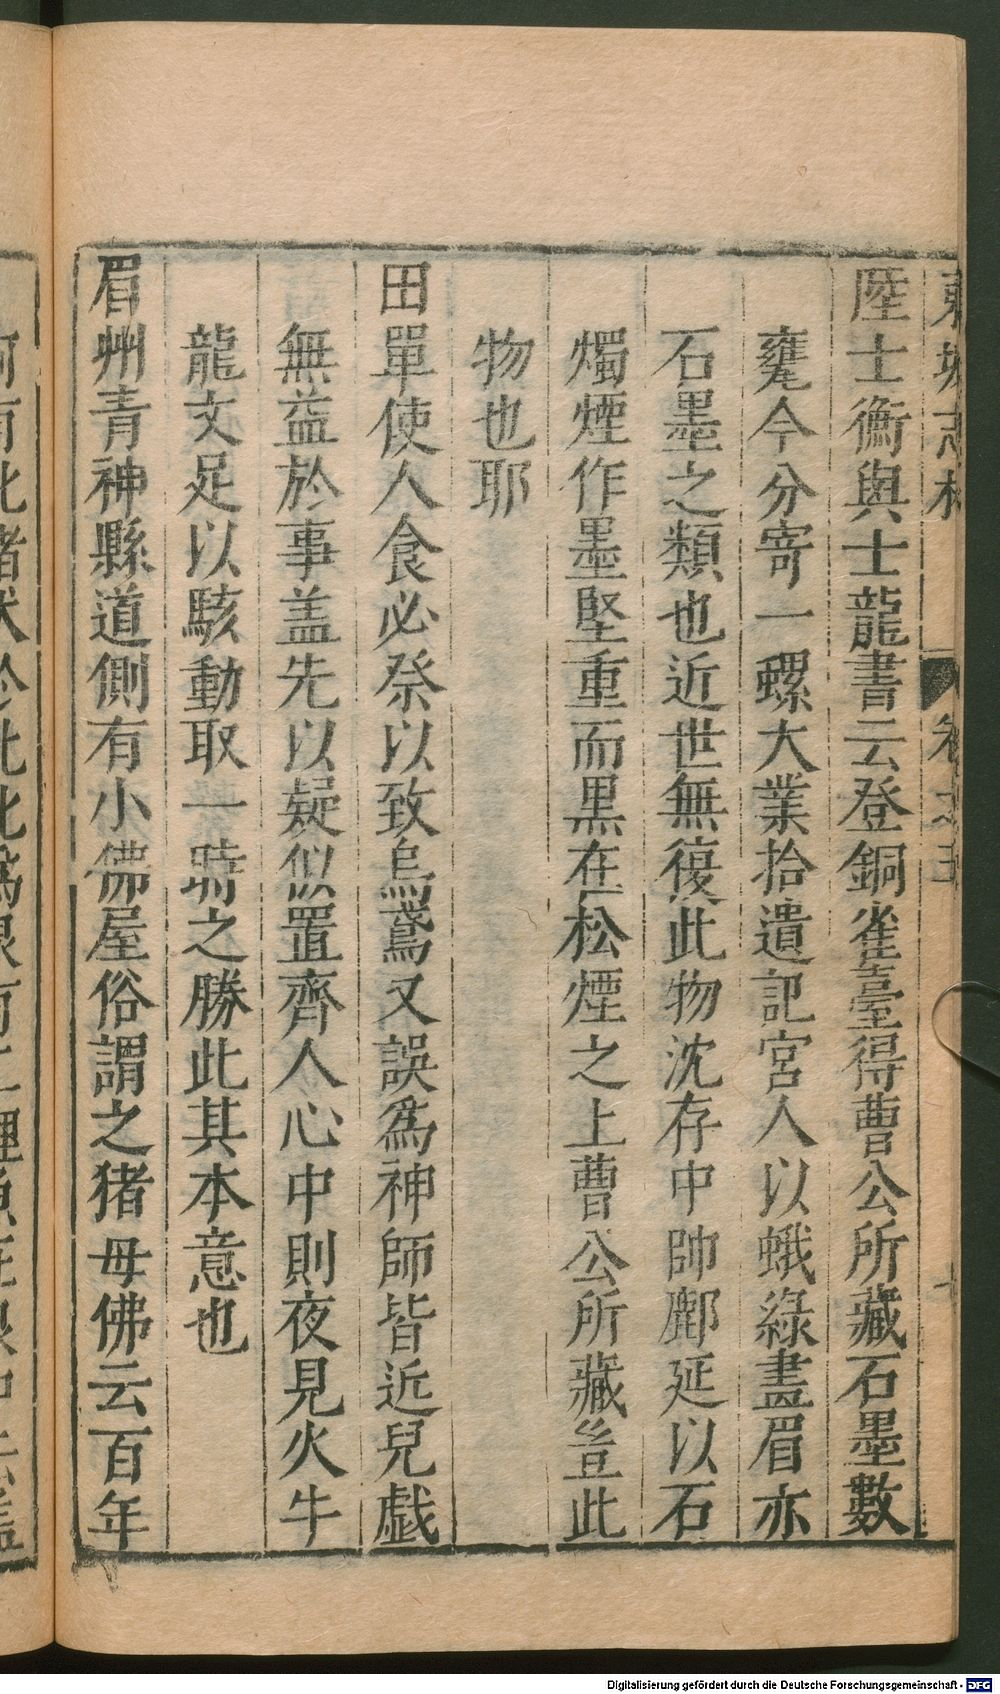 東坡志林 卷之五 十
陸士衡與士龍書云登銅雀臺得曹公所藏石墨數
甕今分寄一螺大業拾遺記宮人以蛾綠畫眉亦
石墨之類也近世無復此物沈存中帥鄜延以石
燭煙作墨堅重而黒在松煙之上曹公所藏豈此
物也耶
田單使人食必祭以致烏鳶又誤爲神師皆近兒戯
無益於事盖先以疑似置齊人心中則夜見火牛
龍文足以駭動取一時之勝此其本意也
眉州青神縣道側有小佛屋俗謂之猪母佛云百年
Digitalisierung gefördert durch die Deutsche Forschungsgemeinschaft - DFG